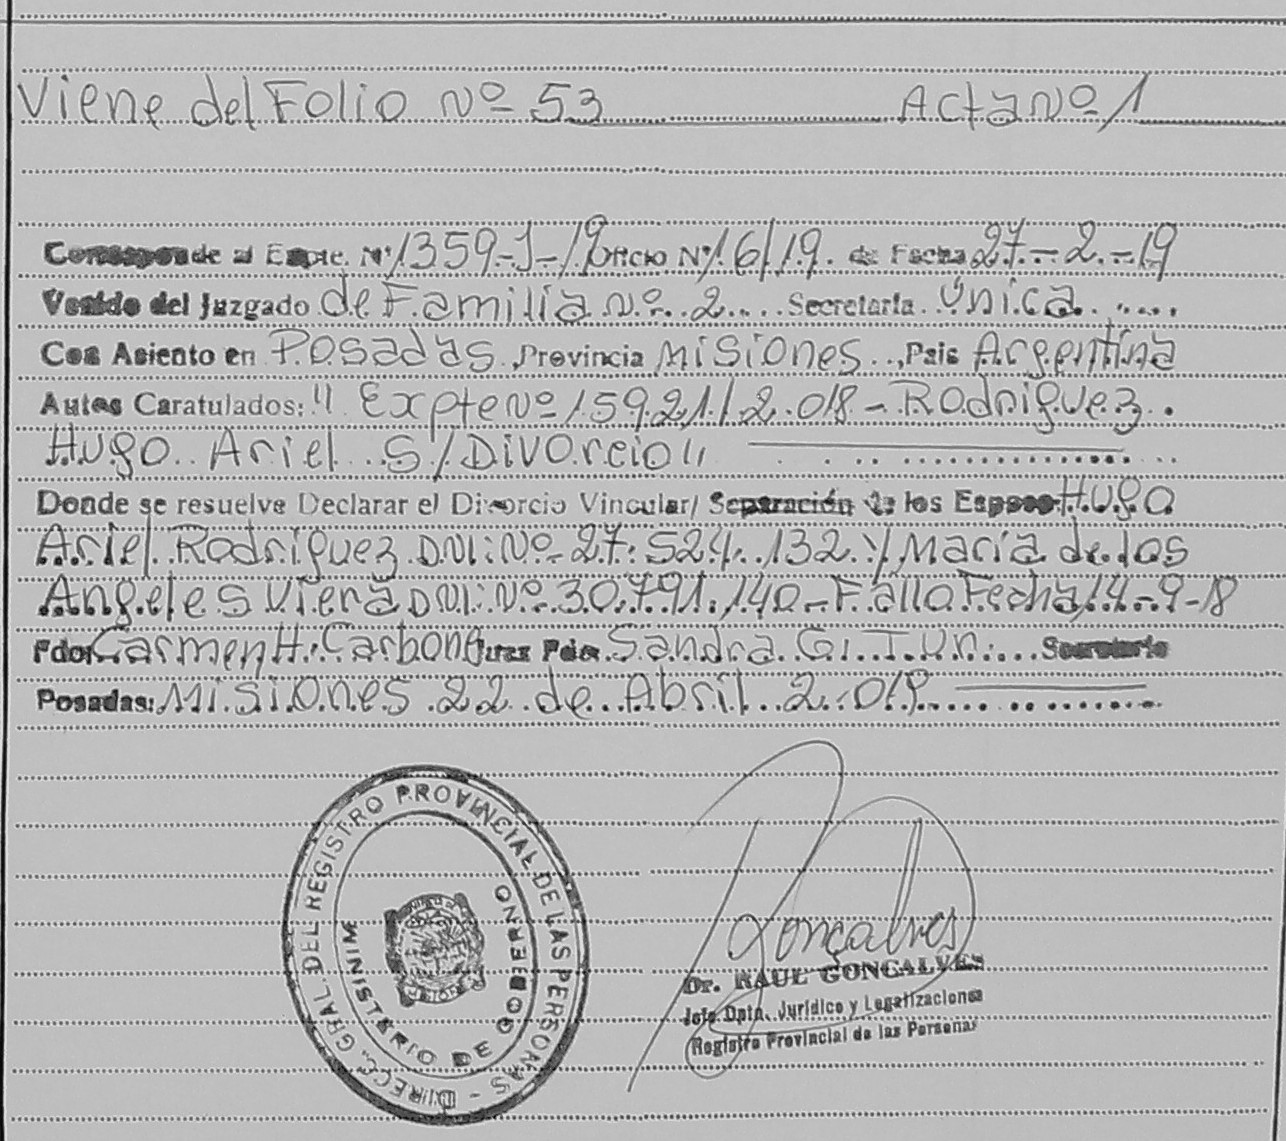 Viene del Folio Nº 53 Acta Nº 1
Corresponde al Expte. Nº 1359-J-19 Oficio Nº 16/19. de Fecha 27-2-19
Venido del Juzgado de Familia Nº 2.... Secretaria Única. ....
Con Asiento en Posadas, Provincia Misiones.., Pais Argentina
Autos Caratulados: " Expte Nº 15921/2018 - Rodriguez.
Hugo Ariel S/Divorcio"
Donde se resuelve Declarar el Divorcio Vincular/ Separación de los Esposos Hugo
Ariel Rodriguez DNI: Nº 27.524.132 y María de los
Angeles Viera DNI: Nº 30.791.140 - Fallo Fecha 14-9-18
Fdo: Carmen H. Carbone Juez Fdo: Sandra G. Tun.... Secretario
Posadas: Misiones 22 de Abril 2.019
DIRECC. GRAL DEL REGISTRO PROVINCIAL DE LAS PERSONAS -
MINISTERIO DE GOBIERNO
MISIONES
Gonçalves
Dr. RAUL GONCALVES
Jefe Dpto. Jurídico y Legalizaciones
Registro Provincial de las Personas